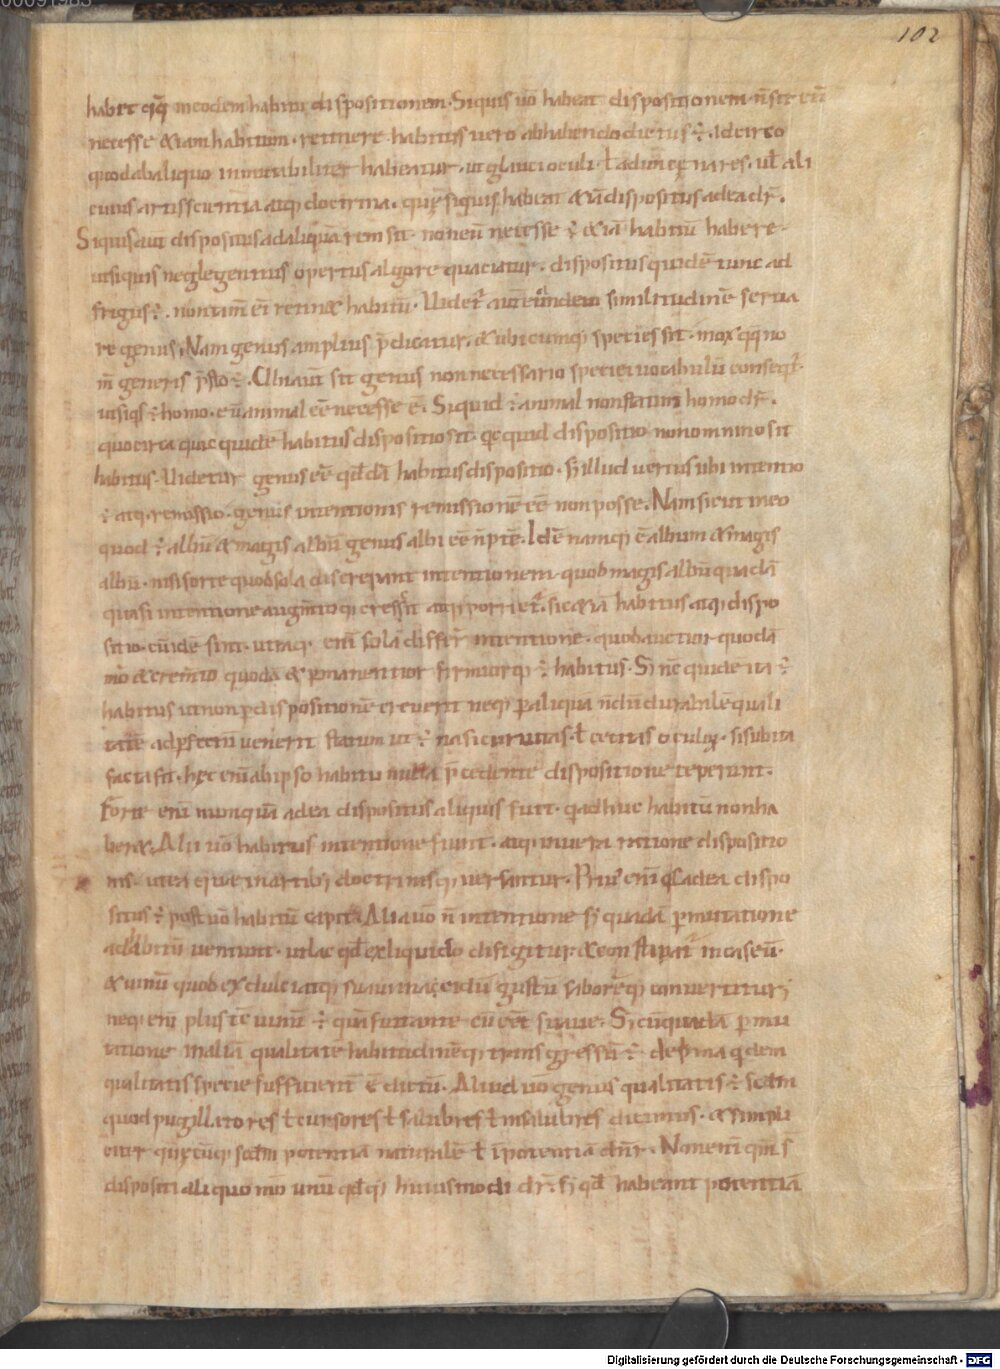 00091983
102
habet eiq; in eodem habitu dispositionem. Siquis uo habeat dispositionem n̄ sit eū
necesse &iam habitum retinere. habitus uero ab habendo dictus ÷. adeirco
quod ab aliquo inmutabiliter habeatur. ut glauci oculi ł adunce nares. uł ali
cuius artis scientia atq; doctrina. quę siquis habeat &iā dispositus ad ea dr̄.
Siquis aut dispositus ad aliquā rem sit. non eum necesse ÷ &iā habitū habere.
ut siquis neglegentius opertus algore quatiatur. dispositus quidē tunc ad
frigus ÷. non tam̄ ei retin& habitū. Videt̄ aut̄ similitudinē serua
re genus. Nam genus amplius p̄dicatur. & ubicumq; species sit. mox q;q; no
m̄ generis p̄sto ÷. Cū aut̄ sit genus non necessario speciei uocabulū conseq̄t̄.
ut siq̄s ÷ homo. eū animal eē necesse ē. Siquid ÷ animal non statim homo dr̄.
quocirca quidē habitus dispositio sit. qcquid dispositio non omnino sit
habitus. Videtur genus eē qddā habitus dispositio. Sꝫ illud uerius ubi intentio
÷ atq; remissio. genus intentionis remissionē eē non posse. Nam sicut in eo
quod ÷ albū & magis albū genus albi eē n̄ ptē. Idē namq; ē album & magis
albū. nisi forte quod sola discrepant intentionem. quod magis albū quadā
quasi intentione augm̄toq; creſſit atq; porriet̄. sic &iā habitus atq; dispo
sitio. cū idē sint. utraq; enī sola differt̄ intentione. quod auctior quodā
mō & crem̄to quodā & pmanentior firmiorq; ÷ habitus. Si nc quidē ita ÷
habitus ut non p dispositionē creuerit neq; p aliqua n̄dū durabilē quali
tatē ad pfectū uenerit statum ut ÷ nasi curuitas. ł cecitas oculoꝝ. si subita
facta sit. hęc enī ab ipso habitu nulla p̄cedente dispositione ceperunt.
Forte enī numquā ad ea dispositus aliquis fuit. q adhuc habitū non ha
ber&. Alii uō habitus intentione fiunt. atq; in uera ratione dispositio
nis. ut ea q̄ in artib; doctrinisq; uersantur. Prius enī q̄s ad ea dispo
situs ÷ post uō habitū capit. Alia uō n̄ intentione sꝫ quadā pmutatione
ad habitū ueniunt. ut lac qd ex liquido difigitur & constipat̄ in caseū.
& uinū quod ex dulci atq; suaui in acidū gustū saborēq; conuertitur.
neq; enī plus tē uinū ÷ quā fuit ante cū eēt suaue. Sꝫ cū quadā pmu
tatione in aliā qualitatē habitudinēq; transgressū ÷. de prima qdem
qualitatis specie sufficient̄ ē dictū. Aliud uō genus qualitatis ÷ scdm
quod pugillatores ł cursores ł salubres ł insalubres dicimus. & simpli
citer quęcūq; scdm potentiā naturalē ł īpotentiā dn̄r. Non enī qm̄ s̄
dispositi aliquo mō unū qdq; huiusmodi dr̄. sꝫ qd habeant potentiā
Digitalisierung gefördert durch die Deutsche Forschungsgemeinschaft - DFG